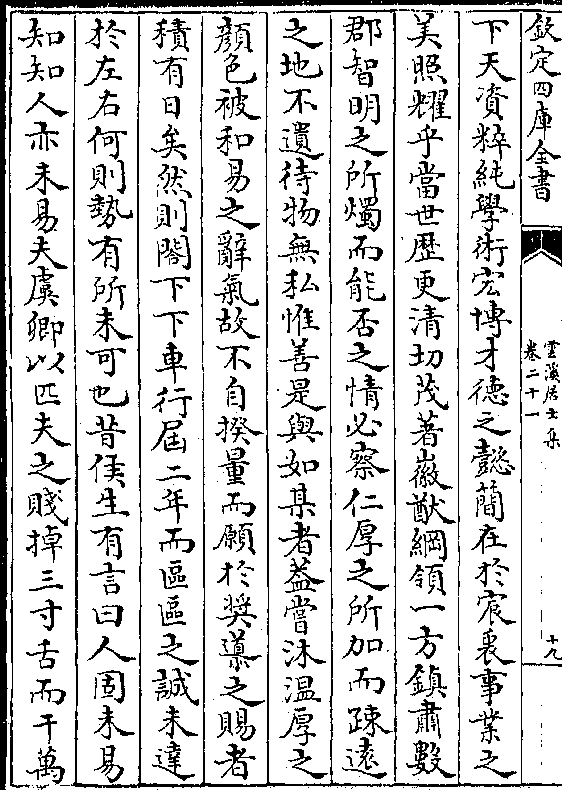 欽定四庫全書
雲溪居士集
卷二十一
十九
下天資粹純學術宏博才德之懿簡在於宸衷事業之
美照耀乎當世歷更清切茂著徽猷綱領一方鎮肅數
郡智明之所燭而能否之情必察仁厚之所加而疎遠
之地不遺待物無私惟善是與如某者葢嘗沐溫厚之
顔色被和易之辭氣故不自揆量而願於奬導之賜者
積有日矣然則閣下下車行屆二年而區區之誠未達
於左右何則勢有所未可也昔侯生有言曰人固未易
知知人亦未易夫虞卿以匹夫之賤掉三寸舌而干萬